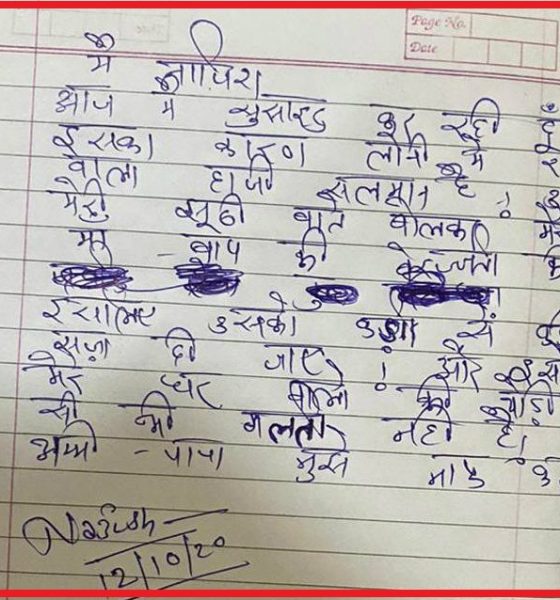 Page No.
Date
मै
आज मै सुसाइड कर रही हूँ
इसका कारण लोनी मे
वाला हाजी सलमान है !
मेरी झूठी बात बोलकर
बाप की बेइज्जती
इसलिए उसको कड़ी से
सज़ा दी जाए ! और इस
मेरे घर वालो की थोड़ी
सी भी गलती नही है !
अम्मी - पापा मुझे माफ
12/10/20